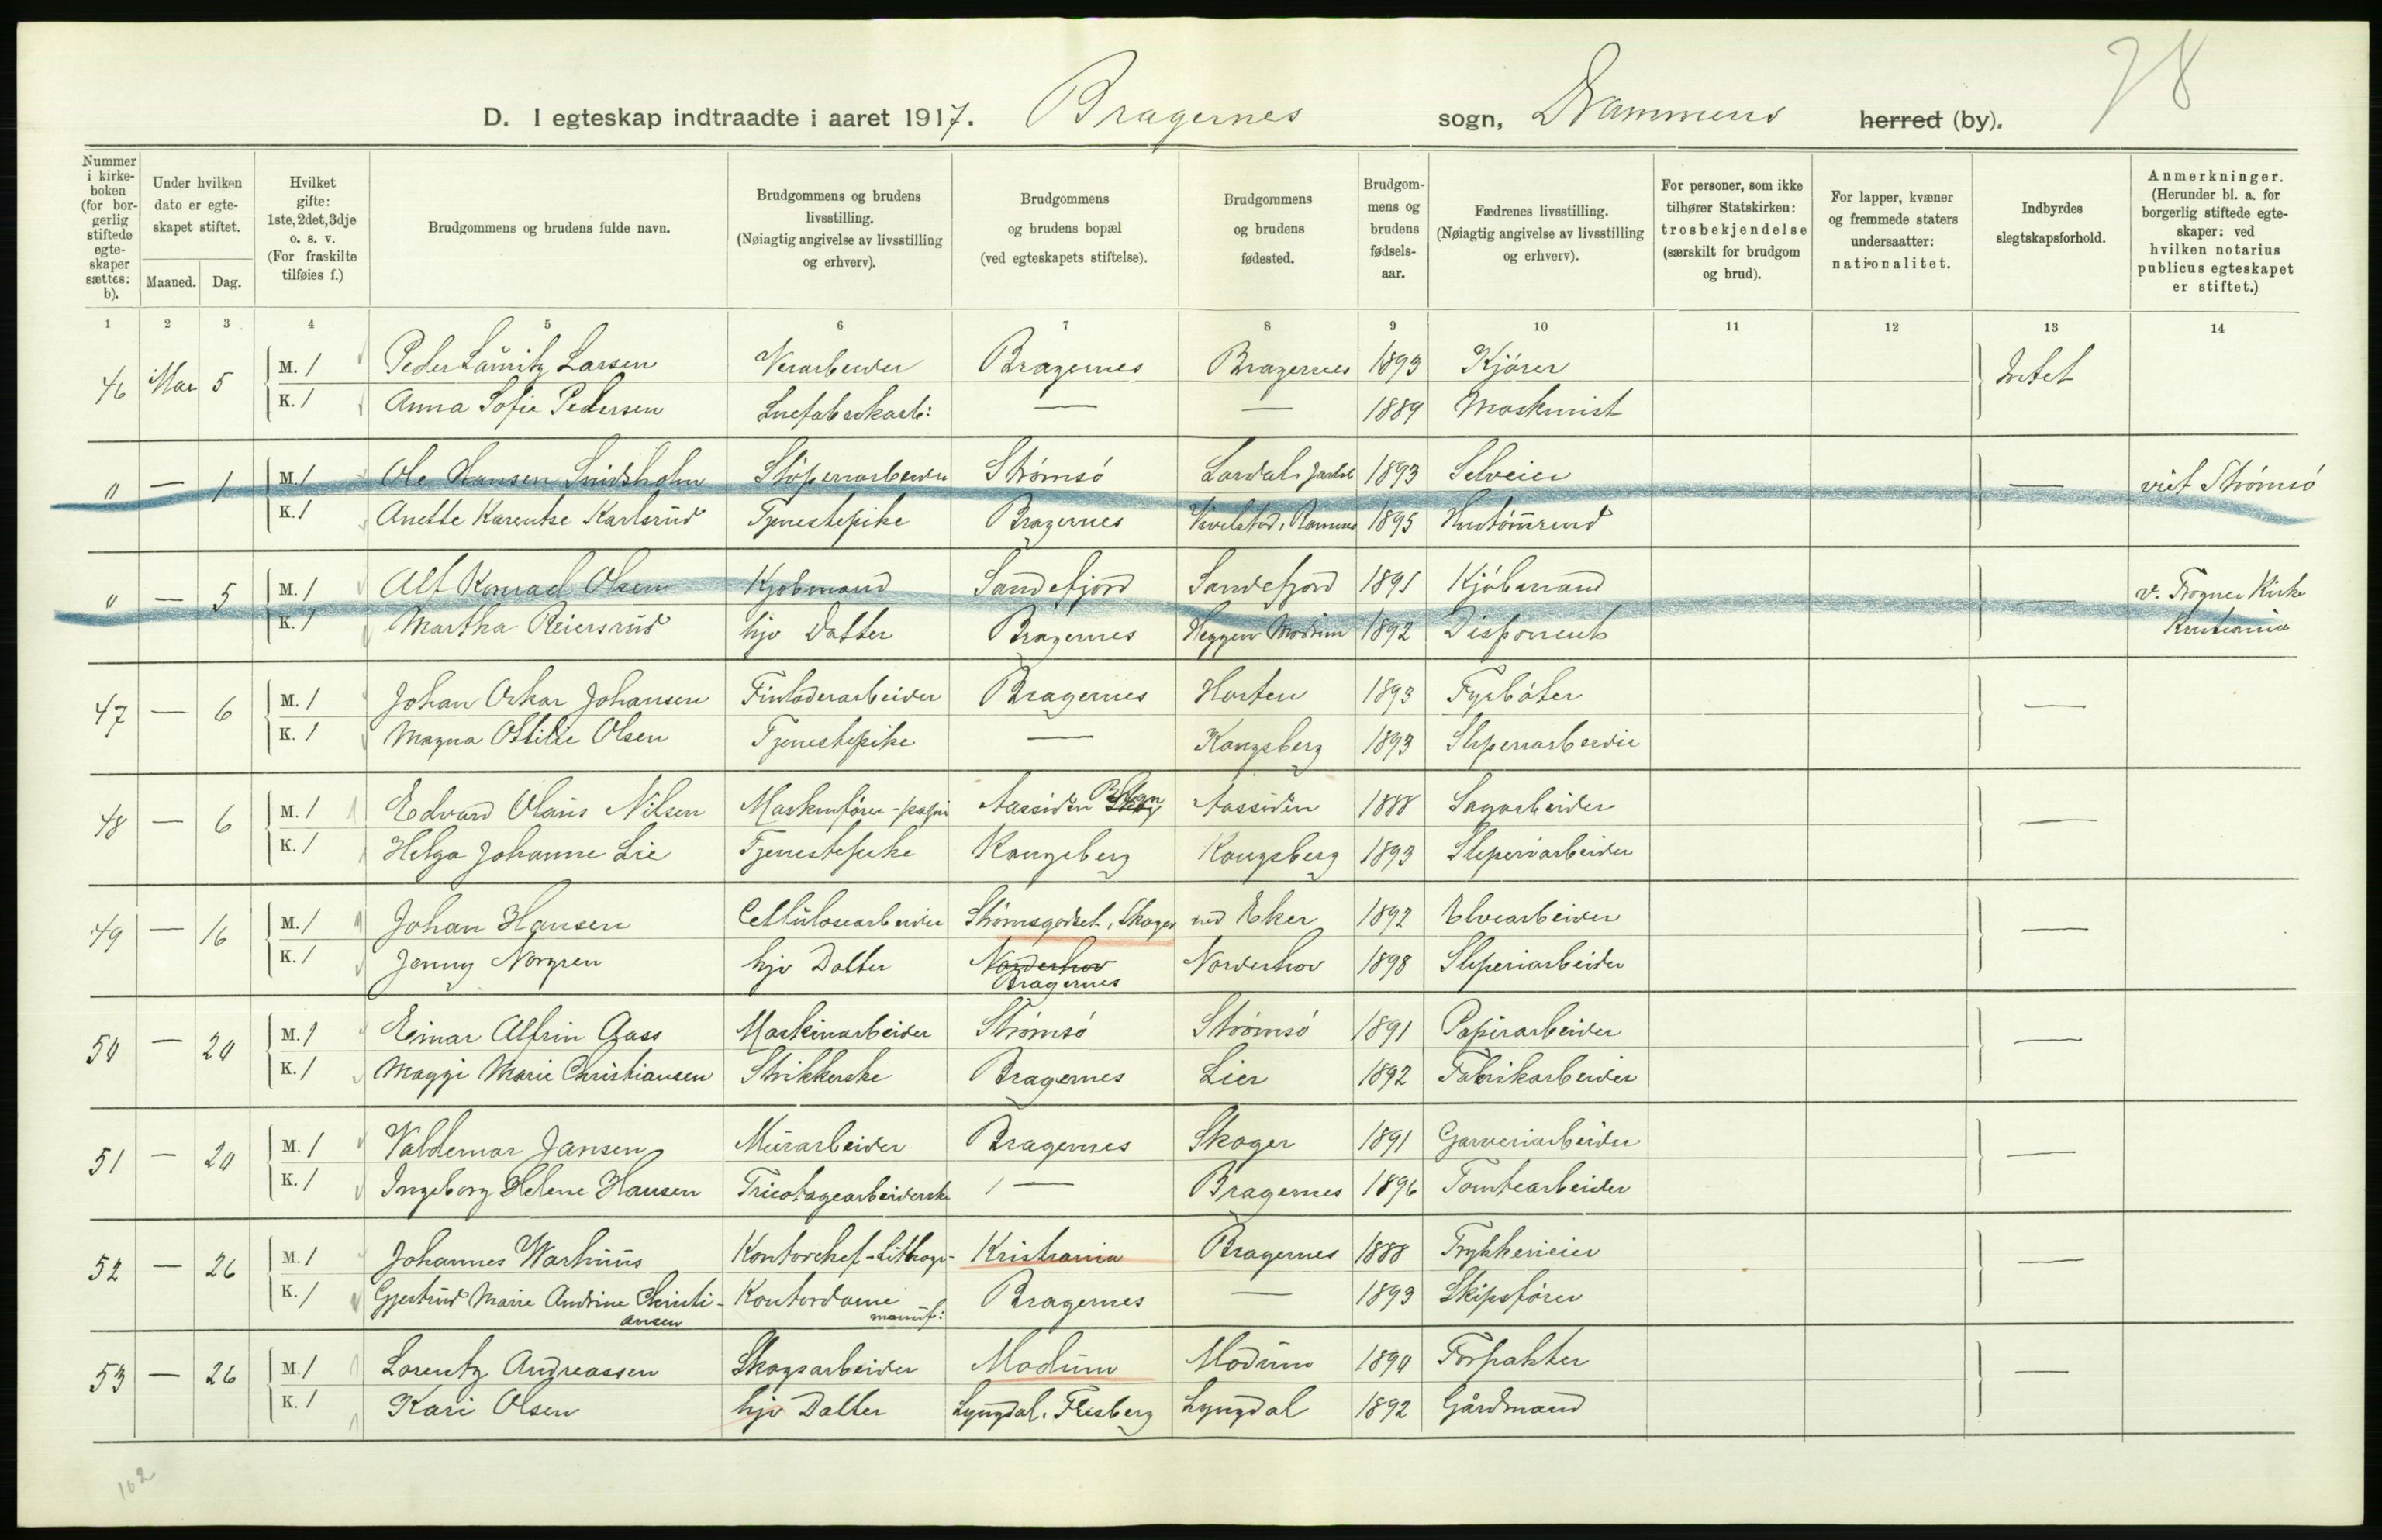 78
D. I egteskap indtraadte i aaret 1917. Bragernes sogn, Drammens herred (by).
Nummer i kirkeboken (for borgerlig stiftede egteskaper sættes: b).
Under hvilken dato er egteskapet stiftet.
Maaned. Dag.
Hvilket gifte: 1ste, 2det, 3dje o. s. v. (For fraskilte tilføies f.)
Brudgommens og brudens fulde navn.
Brudgommens og brudens livsstilling. (Nøiagtig angivelse av livsstilling og erhverv).
Brudgommens og brudens bopæl (ved egteskapets stiftelse).
Brudgommens og brudens fødested.
Brudgommens og brudens fødselsaar.
Fædrenes livsstilling. (Nøiagtig angivelse av livsstilling og erhverv).
For personer, som ikke tilhører Statskirken: trosbekjendelse (særskilt for brudgom og brud).
For lapper, kvæner og fremmede staters undersaatter: nationalitet.
Indbyrdes slegtskapsforhold.
Anmerkninger. (Herunder bl. a. for borgerlig stiftede egteskaper: ved hvilken notarius publicus egteskapet er stiftet.)
1 2 3 4 5 6 7 8 9 10 11 12 13 14
46 Mar 5 M. 1 Peder Lauritz Larsen Verarbeider Bragernes Bragernes 1893 Kjører Intet
K. 1 Anna Sofie Pedersen — — 1889 Maskinist
" — 1 M. 1 Ole Hansen Sliperiarbeider Strømsö Lardal, Jarlsb 1893 Selveier — viet Strømsö
K. 1 Anette Karentse Karlsrud Tjenestepike Bragernes 1895
" — 5 M. 1 Alf Konrad Olsen Kjøbmand Sandefjord Sandefjord 1891 Kjöbmand — v. Frogner Kirke
K. 1 Martha Reiersrud hjv Datter Bragernes Heggen Modum 1892 Disponent Kristiania
47 — 6 M. 1 Johan Oskar Johansen Bragernes Horten 1893 Fyrböter —
K. 1 Magna Ottilie Olsen Tjenestepike — Kongsberg 1893 Sliperiarbeider
48 — 6 M. 1 Edvard Olaus Nilsen Maskinfører - papir Aassiden Aassiden 1888 Sagarbeider —
K. 1 Helga Johanne Lie Tjenestepike Kongsberg Kongsberg 1893 Sliperiarbeider
49 — 16 M. 1 Johan Hansen Cellulosearbeider Strømsgodset, Skoger ned Eker 1892 Elvearbeider —
K. 1 Jenny Norgren hjv Datter Norderhov Norderhov 1898 Sliperiarbeider
Bragernes
50 — 20 M. 1 Einar Alfrin Aass Maskinarbeider Strømsö Strømsö 1891 Papirarbeider —
K. 1 Maggi Marie Christiansen Strikkerske Bragernes Lier 1892 Fabrikarbeider
51 — 20 M. 1 Valdemar Jansen Murarbeider Bragernes Skoger 1891 Garveriarbeider —
K. 1 Ingeborg Helene Hansen Tricotagearbeiderske — Bragernes 1896 Tomtearbeider
52 — 26 M. 1 Johannes Warhuus Kontorchef - Lithogr- Kristiania Bragernes 1888 Trykkerieier —
K. 1 Gjertrud Marie Andrine Christi- Kontordame Bragernes — 1893 Skipsfører
ansen manuf:
53 — 26 M. 1 Lorentz Andreassen Skogsarbeider Modum Modum 1890 Forpakter —
K. 1 Kari Olsen hjv Datter Lyngdal, Flesberg Lyngdal 1892 Gårdmand
102